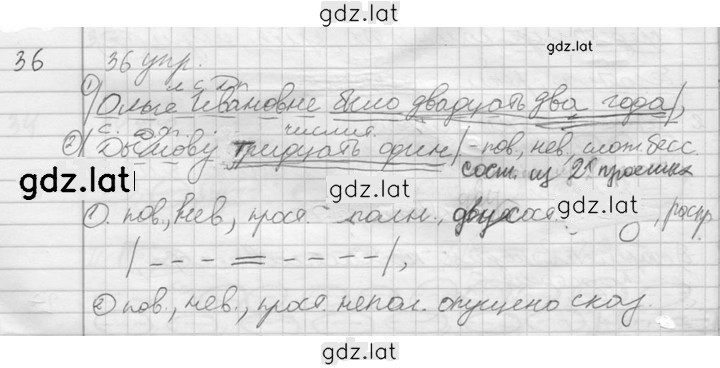 gdz.lat
36 36 упр.
gdz.lat
и.с. Дп.
① Ольге Ивановне было двадцать два года,
с. Дп. числит.
② Дымову тридцать один - пов, нев, слож. бесс
gdz.lat сост. из 2х простых
gdz.lat
① пов, нев, прост. полн., двусост., распр
② пов, нев, прост. непол. опущено сказ.
gdz.lat